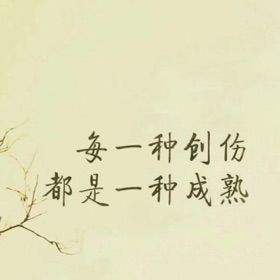 每一种创伤
都是一种成熟